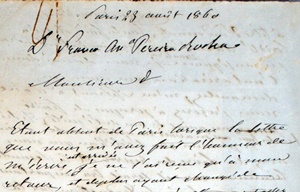 Paris 23 août 1860
Dr Franco Anº Pereira Rocha
Monsieur
Etant absent de Paris lorsque la lettre
que vous m'avez fait l'honneur de
m'écrire est arrivée, je n'ai pu qu'à mon
retour, et depuis ayant changé de